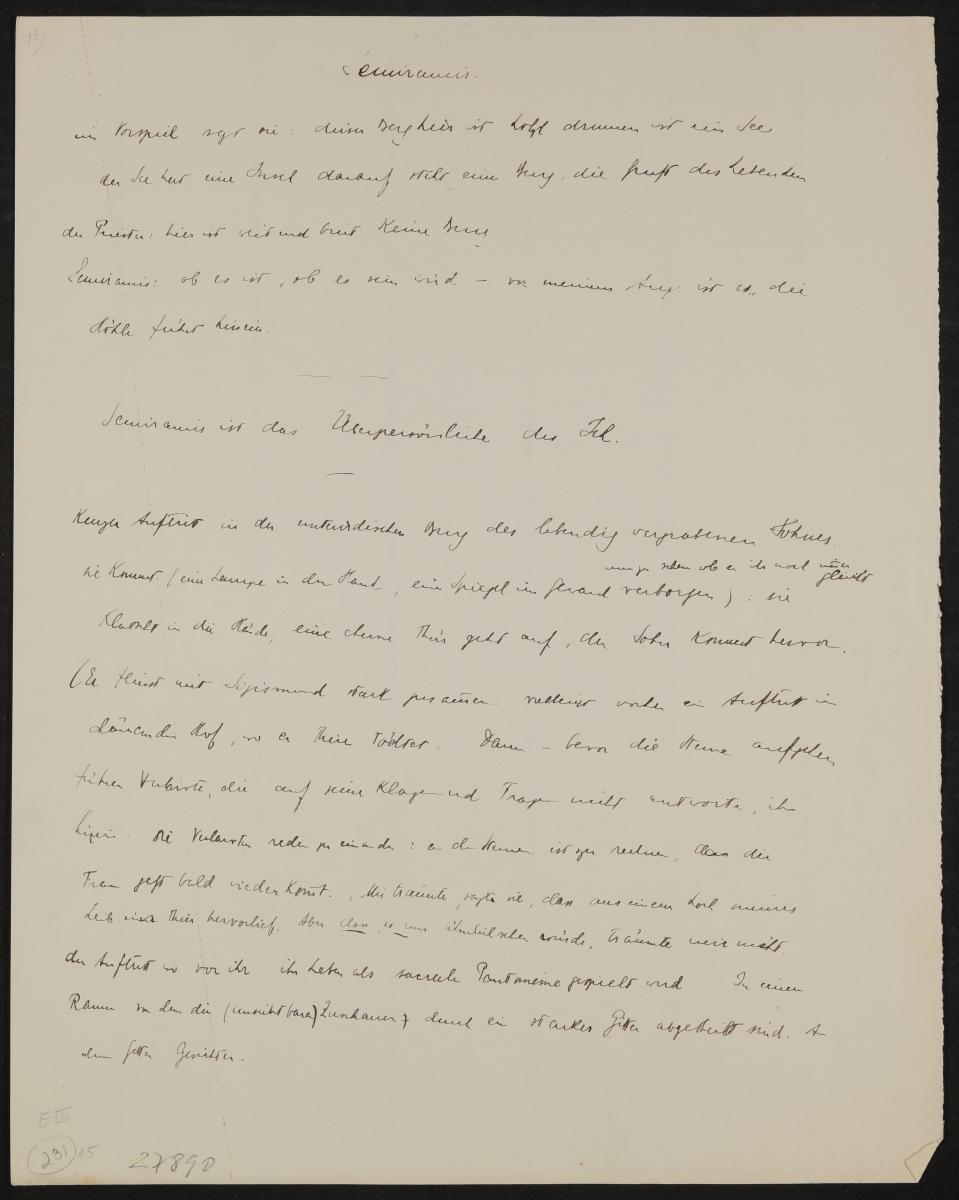 13)
Semiramis.
im Vorspiel sagt sie: dieser Berg hier ist hohl drunnen ist ein See
der See hat eine Insel darauf steht eine Burg, die Gruft des Lebenden
der Priester: hier ist weit und breit Keine Burg
Semiramis: ob es ist, ob es sein wird – vor meinem Aug ist es, die
Höhle führt hinein.
Semiramis ist das Überpersönliche des Ich.
Auftritt in der unterirdischen Burg des lebendig vergrabenen Sohnes.
sehen ob er ihr noch immer gleicht
sie Kommt (eine Lampe in der Hand, ein Spiegel im Gewand verborgen): sie
Klatscht in die Hände, eine eherne Thür geht auf, der Sohn Kommt hervor.
(Er mit Sigismund stark zusammen. vielleicht vorher ein Auftritt im
Hof, wo er Thiere tödtet. Dann – bevor die Sterne aufgehen
führen Verlarvte, die auf seine Klagen und Fragen nicht antworten, ihn
hinein. Die Verlarvten reden zu einander: an den Sternen ist zu rechnen, dass die
Frau jetzt bald wieder Komt. Mir träumte, sagte sie, dass aus einem Loch meines
Leibs ein Thier hervorlief. Aber dass es mir ähnlich sehen würde, träumte mir nicht.
der Auftritt wo vor ihr ihr Leben als sacrale Pantomime gespielt wird. In einem
Raum von dem die (unsichtbaren) Zuschauer durch ein starkes Gitter abgetheilt sind. An
dem Gitter Gesichter.
E III
231 15
27890